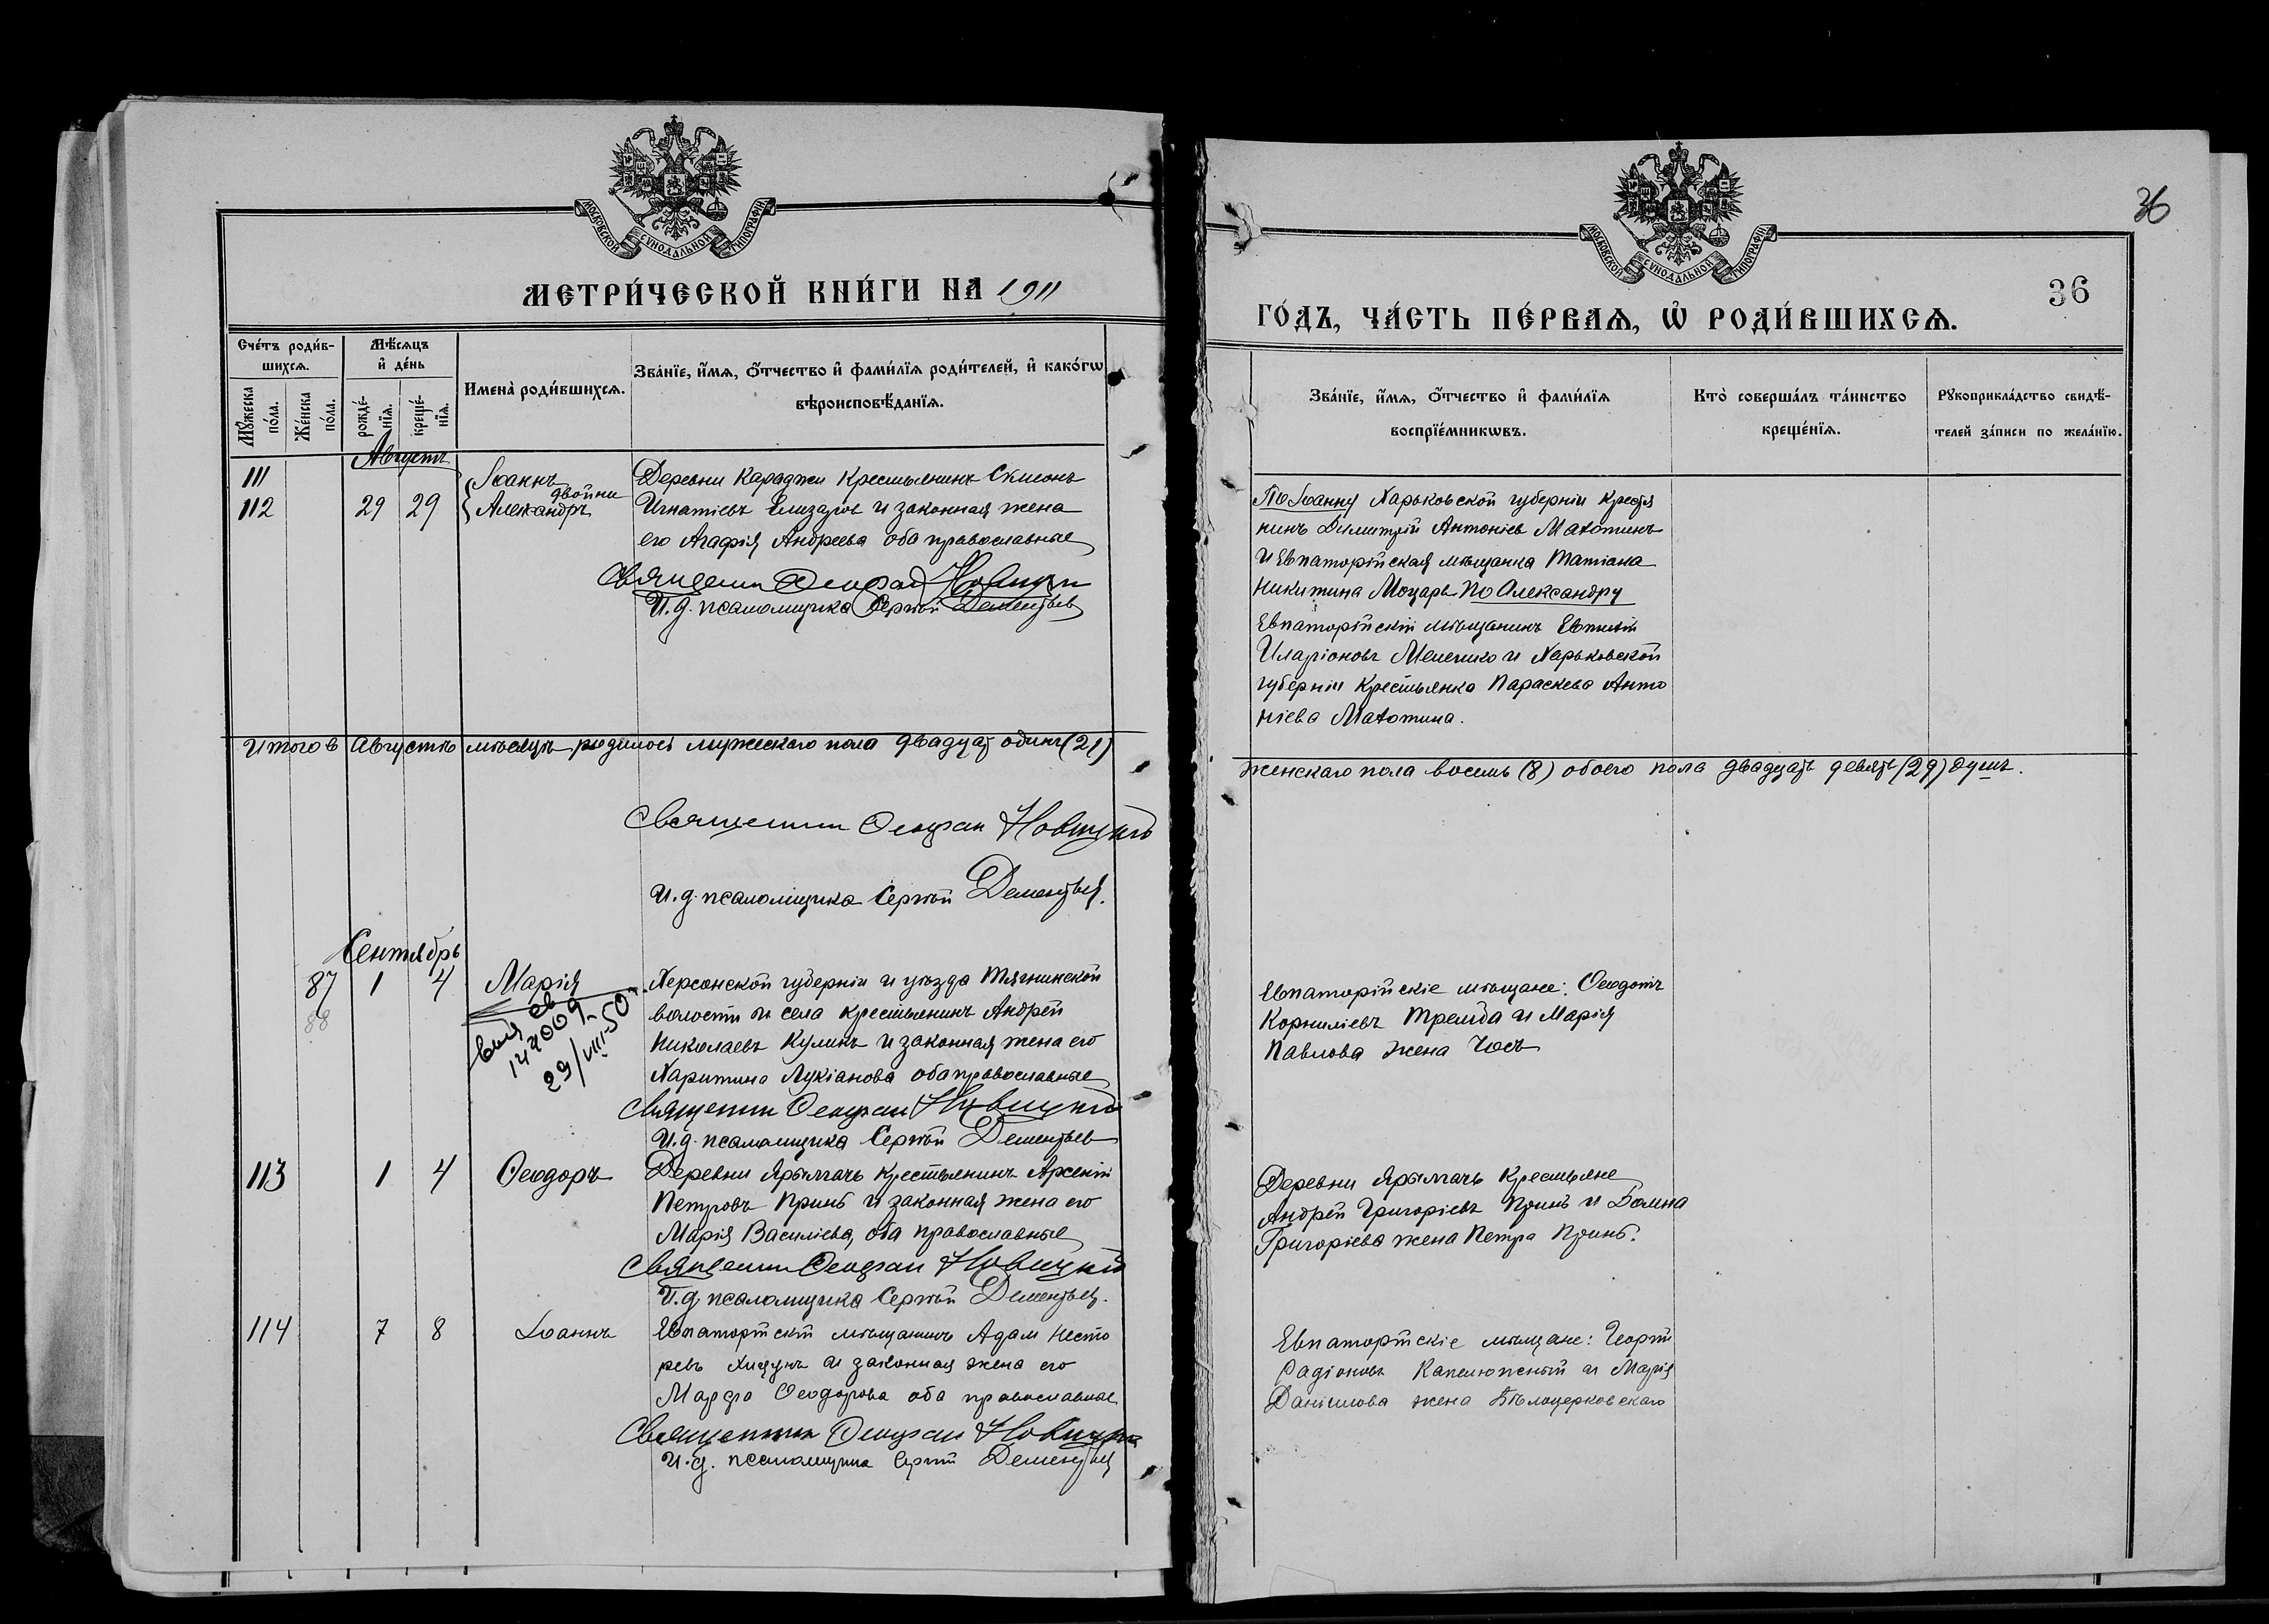 МОСКОВСКОЙ СѴНОДАЛЬНОЙ ТИПОГРАФІИ
МЕТРИ́ЧЕСКОЙ КНИ́ГИ НА 1911
Сче́тъ роди́в-
шихсѧ.
Мѣ́сѧцъ
и҆ де́нь
Мꙋ́жеска
по́ла.
Же́нска
по́ла.
рожде́-
нїѧ.
креще́-
нїѧ.
Имена̀ роди́вшихсѧ.
Зва́нїе, и҆́мѧ, ѻ҆́тчество и҆ фами́лїѧ роди́телей, и҆ како́гѡ
вѣроисповѣ́данїѧ.
Августъ
111
112 29 29
Іоаннъ
двойни
Александръ
Деревни Караджи крестьянинъ
Игнатіевъ Елизаровъ и законная жена
его Агафія Андреева оба православные
Священникъ Ѳеофан Новицкій
И. д. псаломщика Сергѣй Дементьев
Итого в Августѣ мѣсяцѣ родилось мужескаго пола двадцать одинъ (21)
Священник Ѳеофан Новицкій
И. д. псаломщика Сергѣй Дементьев.
Сентябрь
87 1 4 Марія
88
144009
29/VIII-50
Херсонской губерніи и уѣзда Тягинской
волости и села крестьянинъ Андрей
Николаевъ Куликъ и законная жена его
Харитина Лукіанова оба православные
Священник Ѳеофан Новицкій
И. д. псаломщика Сергѣй Дементьев
113 1 4 Ѳеодоръ
Деревни Ярылгачъ крестьянинъ Арсеній
Петровъ Принь и законная жена его
Марія Василіева, оба православные
Священник Ѳеофан Новицкій
И. д. псаломщика Сергѣй Дементьев.
114 7 8 Іоаннъ
Евпаторійскій мѣщанинъ Адам Несто
ревъ и законная жена его
Марфа Ѳеодорова оба православные
Священник Ѳеофан Новицкій
И. д. псаломщика Сергѣй Дементьев
36
МОСКОВСКОЙ СѴНОДАЛЬНОЙ ТИПОГРАФІИ
36
ГО́ДЪ, ЧА́СТЬ ПЕ́РВАѦ, Ѡ҆ РОДИ́ВШИХСѦ.
Зва́нїе, и҆́мѧ, ѻ҆́тчество и҆ фами́лїѧ
воспрїе́мникѡвъ.
Кто̀ соверша́лъ та́инство
креще́нїѧ.
Рꙋкоприкла́дство свидѣ́-
телей за́писи по жела́нїю.
По Іоанну Харьковской губерніи крестья
нинъ Димитрій Антоніев Махотинъ
и Евпаторійская мѣщанка Татіана
Никитина Моцарь По Александру
Евпаторійскій мѣщанинъ
Иларіоновъ и Харьковской
губерніи крестьянка Параскева Анто
ніева Махотина.
женскаго пола восемь (8) обоего пола двадцать девять (29) душъ.
Евпаторійскіе мѣщане: Ѳеодотъ
Корниліевъ и Марія
Павлова жена
Деревни Ярылгачъ крестьяне
Андрей Григоріевъ Принь и Домна
Григоріева жена Петра Принь.
Евпаторійскіе мѣщане: Георгій
Радіоновъ и Марія
Даніилова жена Бѣлоцерковскаго